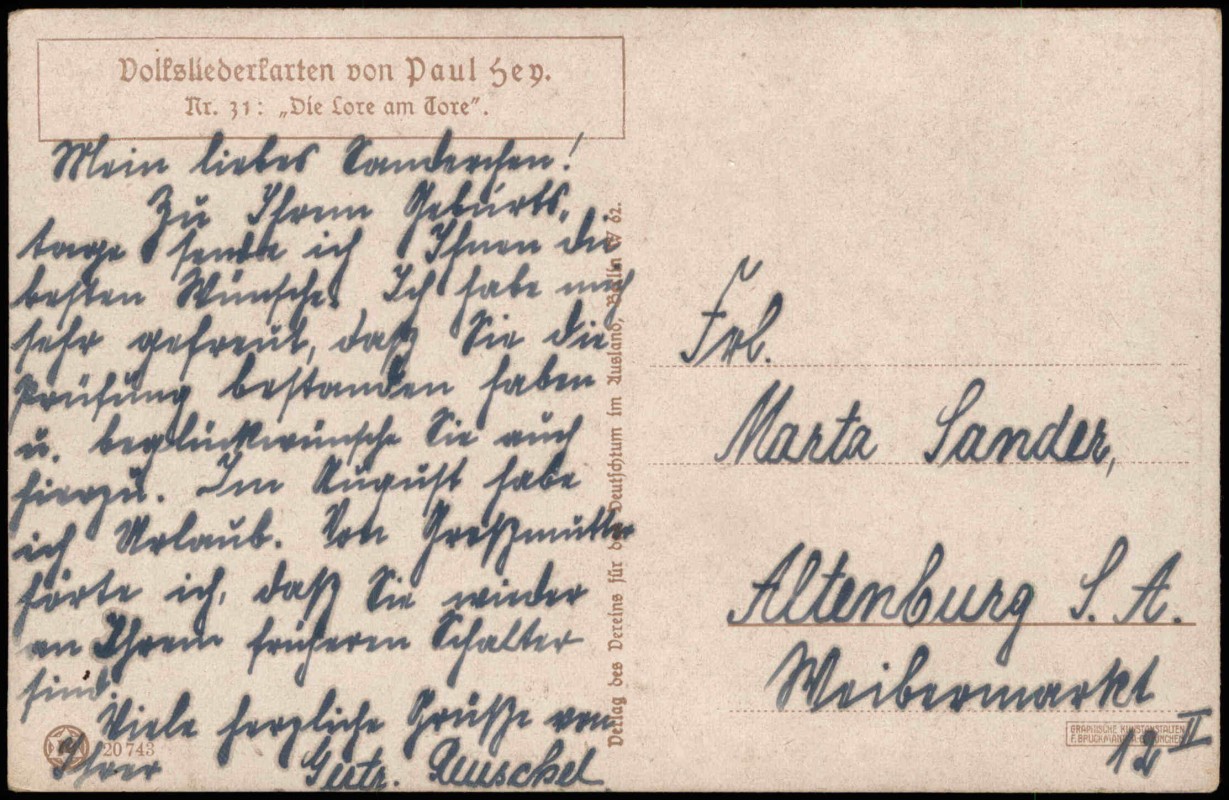 Volksliederkarten von Paul Hey.
Nr. 31: „Die Lore am Tore".
Mein liebes Sanderchen!
Zu Ihrem Geburts,
tage sende ich Ihnen die
besten Wünsche. Ich habe mich
sehr gefreut, daß Sie die
Prüfung bestanden haben
u. beglückwünsche Sie auch
hierzu. Im August habe
ich Urlaub. Von Großmutter
hörte ich, daß Sie wieder
an Ihrem früheren Schalter
sind.
Viele herzliche Grüße von
Ihrer
20743
Verlag des Vereins für das Deutschtum im Ausland, Berlin W 62.
Frl.
Marta Sander,
Altenburg S. A.
Weibermarkt
12 II
GRAPHISCHE KUNSTANSTALTEN
F. BRUCKMANN A-G MÜNCHEN